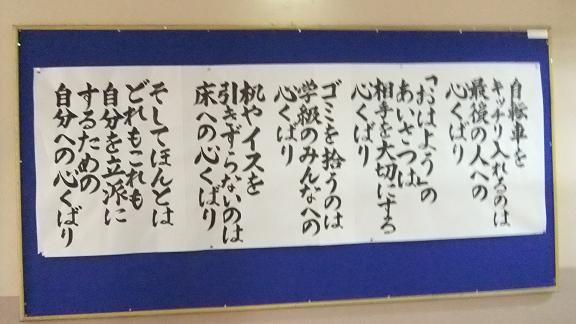 自転車を
キッチリ入れるのは
最後の人への
心くばり
「おはよう」の
あいさつは
相手を大切にする
心くばり
ゴミを拾うのは
学級のみんなへの
心くばり
机やイスを
引きずらないのは
床への心くばり
そしてほんとは
どれもこれも
自分を立派に
するための
自分への心くばり